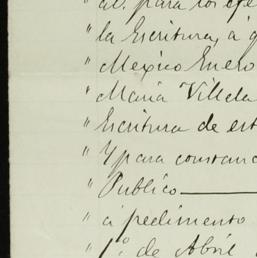 " al. para los efe
" la Escritura, á q
" Mexico Enero
" Maria Villela
" Escritura de est
" Y para constanc
" Publico
" á pedimento
" 1º. de Abril